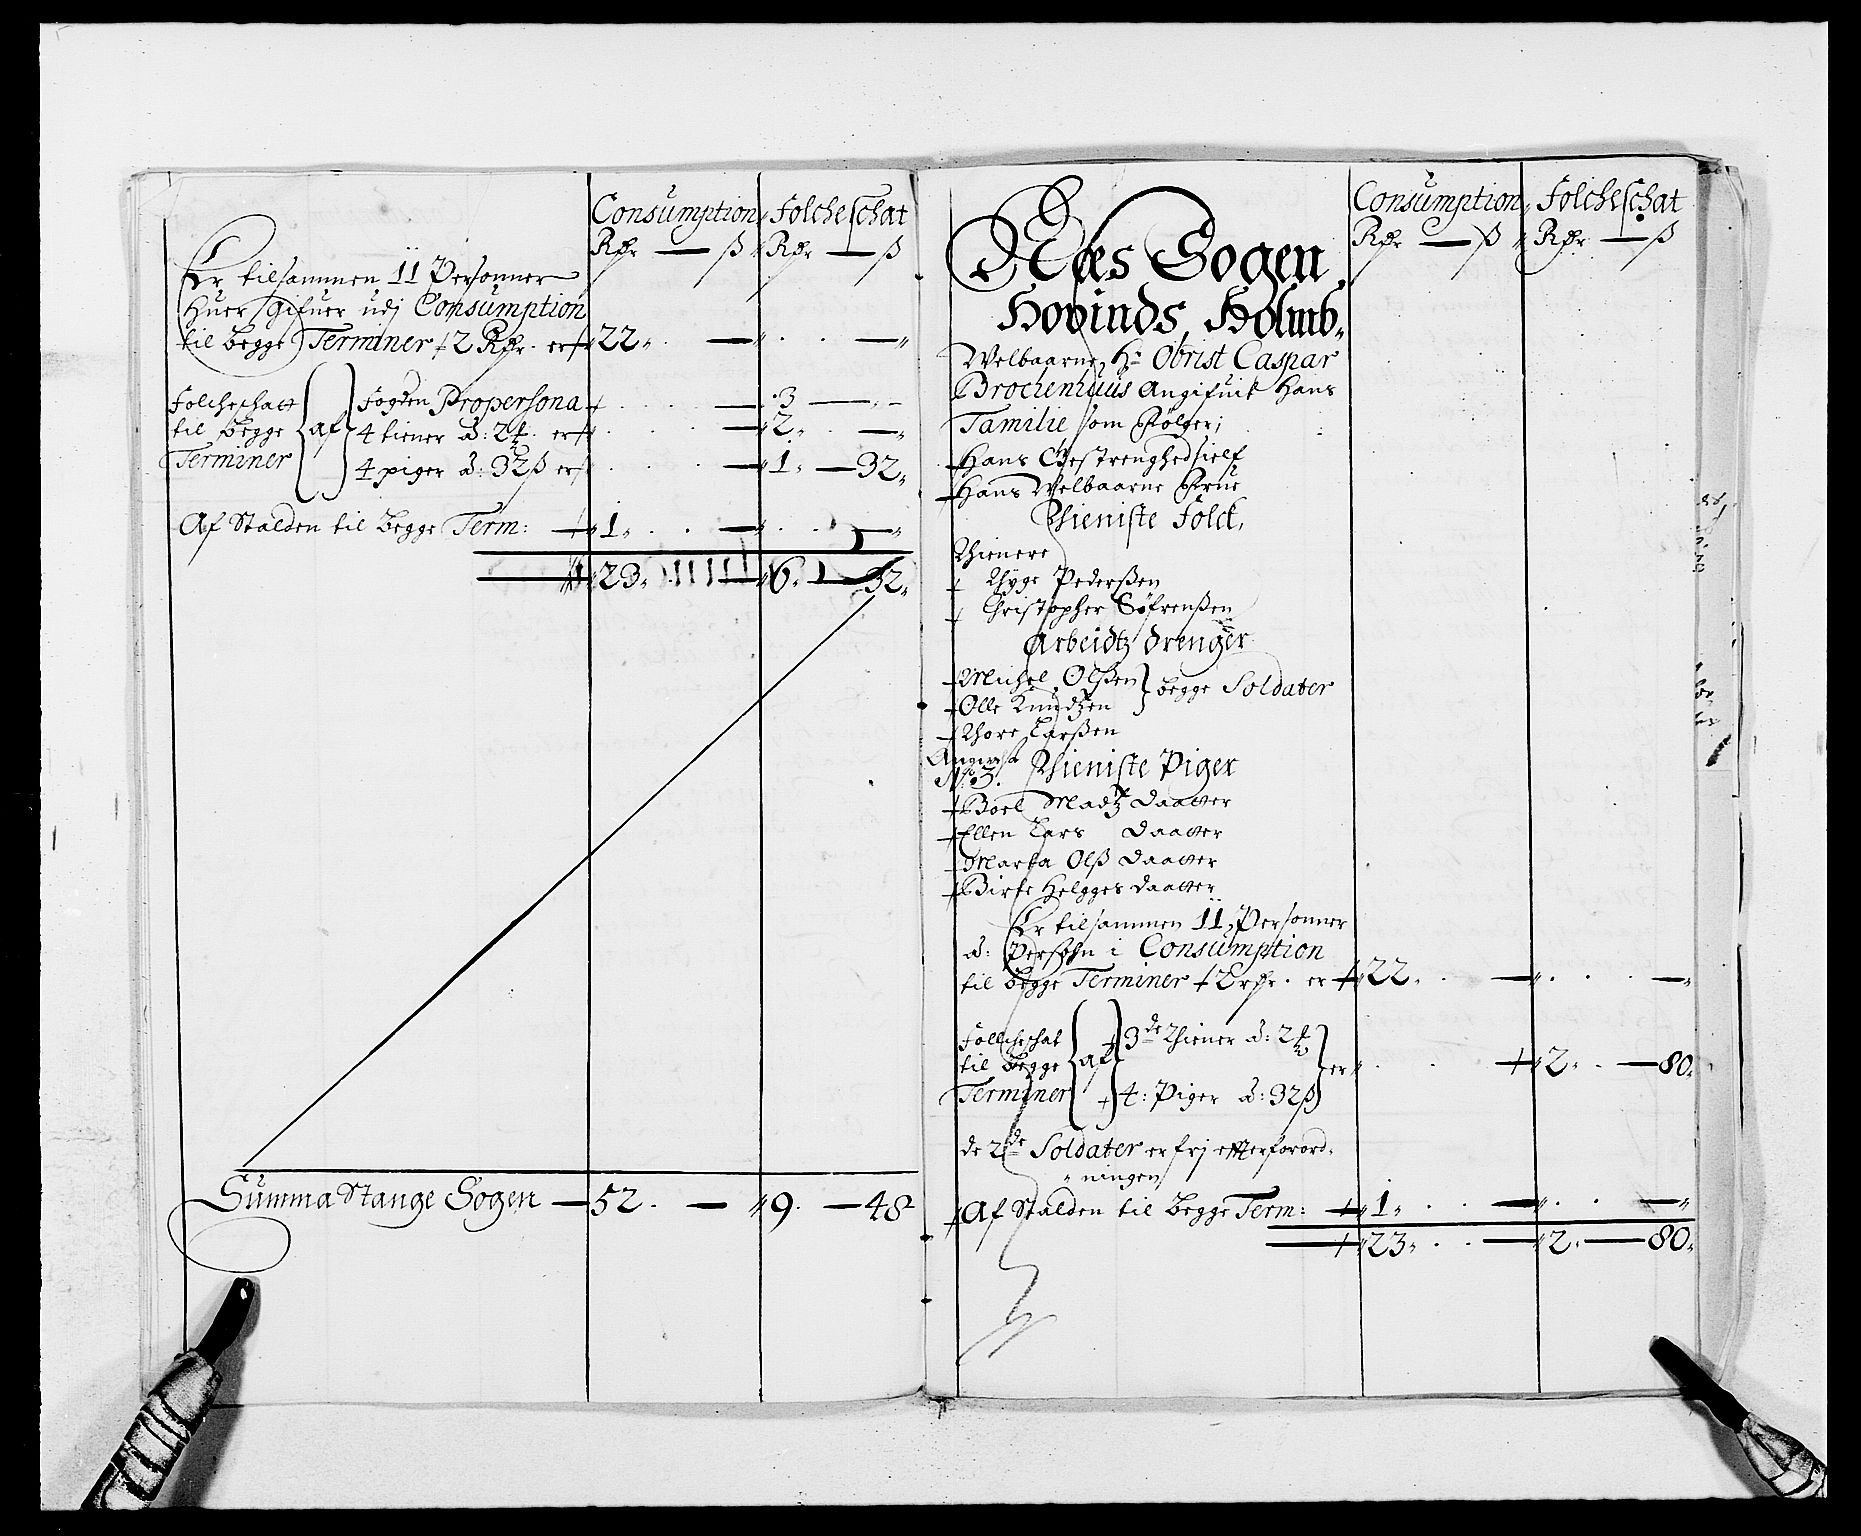 Consumption, Folcheschat
Rdr — ß Rdr — ß
Er tilsammen 11 Personner
Huer gifuer udj Consumption
til begge Terminer 2 Rdr. er 22 — —
Folcheschatt til begge Terminer af
Fogden Propersona 3 —
4 tiener à: 2 er 2 —
4 piger à: 32 ß er 1 — 32
Af Stalden til begge Term: 1 — —
23 — 6 — 32
Summa Stange Sogen — 52 — 9 — 48
Consumption, Folcheschat
Rdr — ß Rdr — ß
Næs Sogen
Hovinds Holmb
Welbaarne Hr Obrist Caspar
Brochenhuus Angifuit Hans
Familie som Følger;
Hans Gestrenghed sielf
Hans Welbaarne Frue
Thieniste Folck,
Thienere
Thyge Pederßen
Christopher Søfrenßen
Arbeidtz drenger
Michel Olßen
Olle Knudtzen } begge Soldater
Thore Larßen
No: 3.
Thieniste Piger
Boel Madtz daatter
Ellen Lars daatter
Marta Olß daatter
Birte Helgges daatter
Er tilsammen 11 Personner
à: Persohn i Consumption
til begge Terminer 2 rdr. er 22 — —
Follcheschat til begge Terminer af
3de Thiener à: 2
4: Piger à: 32 ß } er 2 — 80
de 2de Soldater er frj efter forord-
ningen
Af Stalden til begge Term: 1 — —
23 — 2 — 80